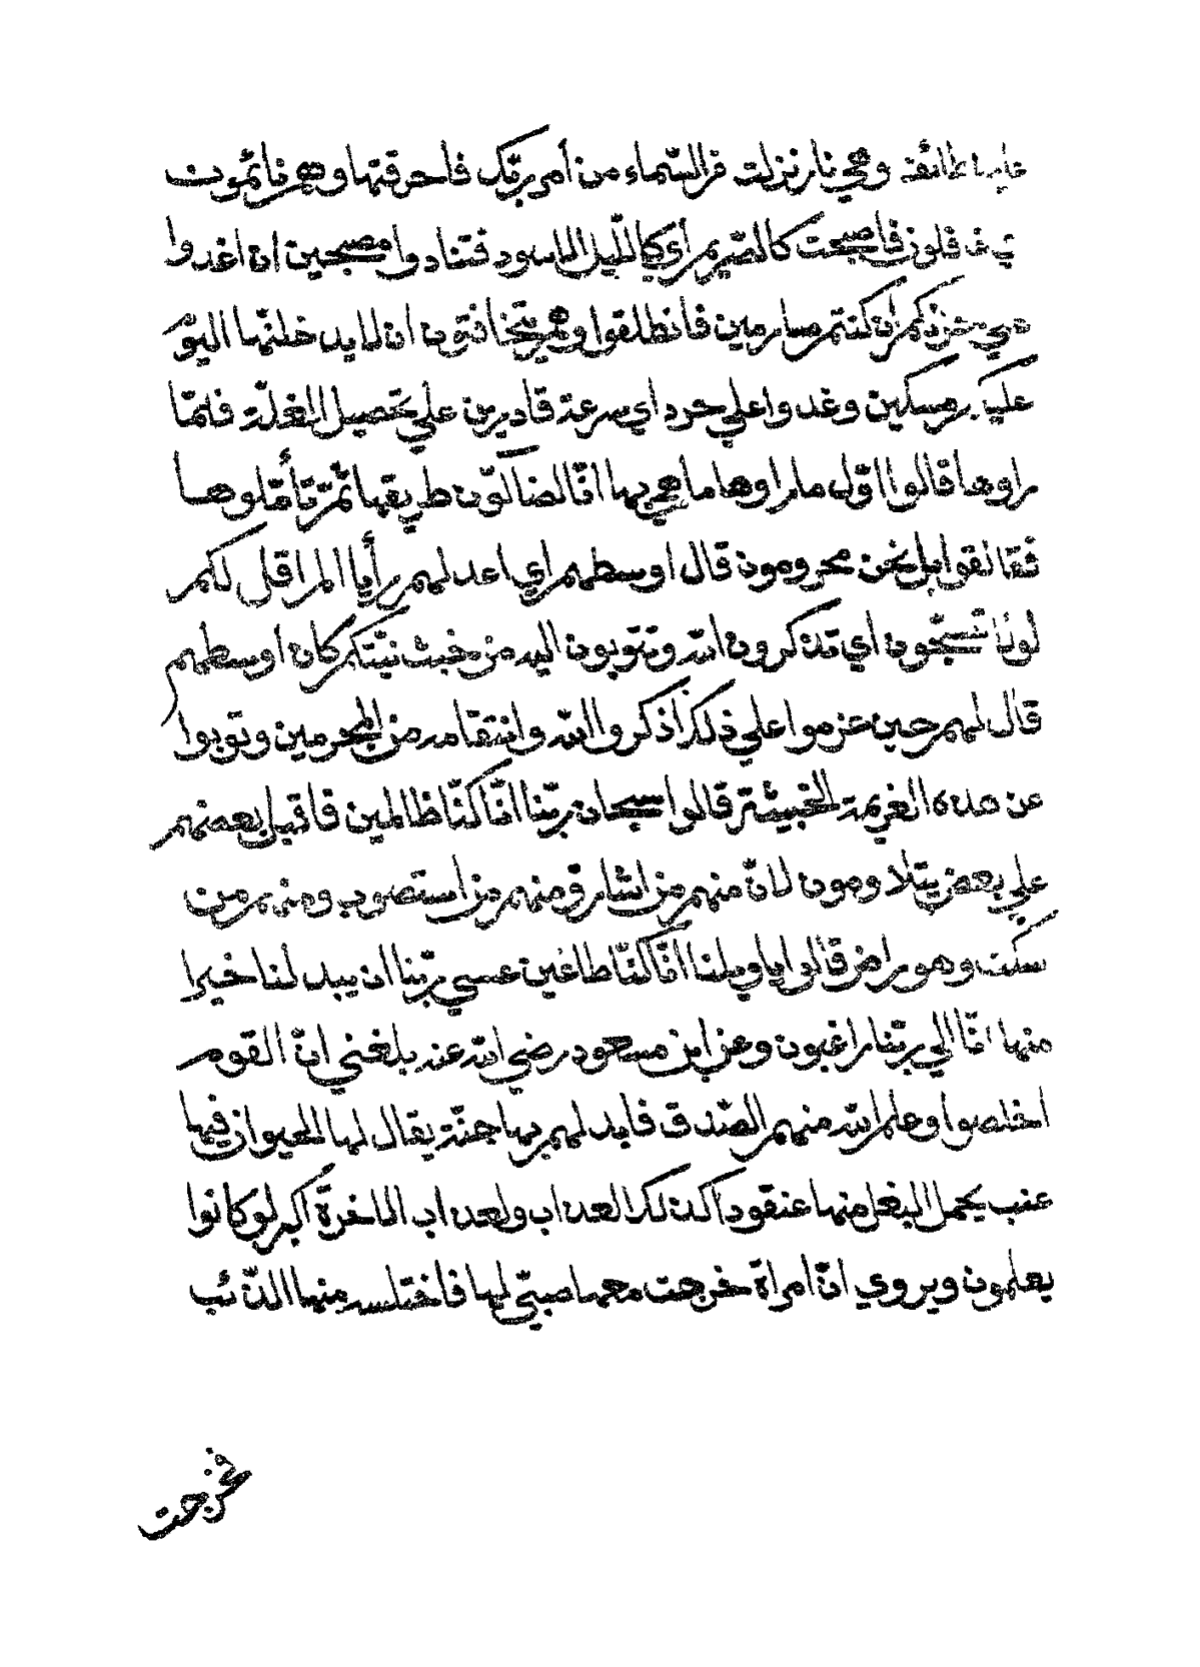 عليها طائفة وهي نار نزلت من السّماء من أمر ربّك فاحرقتها وهم نائمون
في غفلون فاصبحت كالصّريم أي كاللّيل الاسود فتنادوا مصبحين ان اغدوا
علي حرثكم ان كنتم صارمين فانطلقوا وهم يتخافتون ان لا يدخلنّها اليوم
عليكم مسكين وغدوا علي حرد اي سرعة قادرين علي تحصيل الغلّة فلمّا
راوها قالوا اوّل ما راوها ما هي بها انّا لضالّون طريقها ثمّ تأمّلوها
فقالوا بل نحن محرومون قال اوسطهم اي اعدلهم رأيا الم اقل لكم
لولا تسبّحون اي تذكرون الله وتتوبون اليه من خبث نيّتكم كان اوسطهم
قال لهم حين عزموا علي ذلك اذكروا الله وانتقامه من المجرمين وتوبوا
عن هذه العزيمة الخبيثة قالوا سبحان ربّنا انّا كنّا ظالمين فاقبل بعضهم
علي بعض يتلاومون لانّ منهم من اشار ومنهم من استصوب ومنهم من
سكت وهو راض قالوا يا ويلنا انّا كنّا طاغين عسي ربّنا ان يبدلنا خيرا
منها انّا الي ربّنا راغبون وعن ابن مسعود رضي الله عنه بلغني انّ القوم
اخلصوا وعلم الله منهم الصّدق فابدلهم بها جنّة يقال لها الحيوان فيها
عنب يحمل البغل منها عنقودا كذلك العذاب ولعذاب الاخرة اكبر لو كانوا
يعلمون ويروي انّ امراة خرجت معها صبيّ لها فاختلسه منها الذّئب
فخرجت